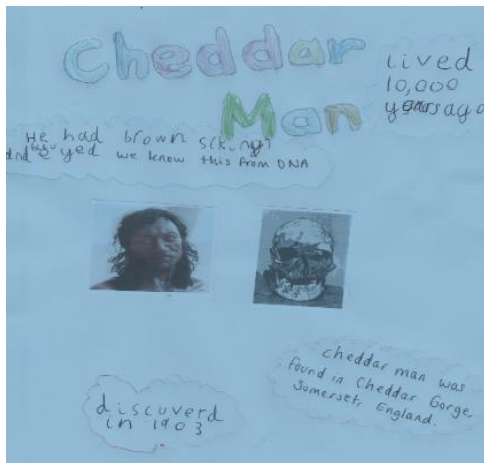 Cheddar
Man
lived
10,000
years ago
He had brown skin
and eyed we know this from DNA
discuverd
in 1903
cheddar man was
found in Cheddar Gorge,
Somerset, England.